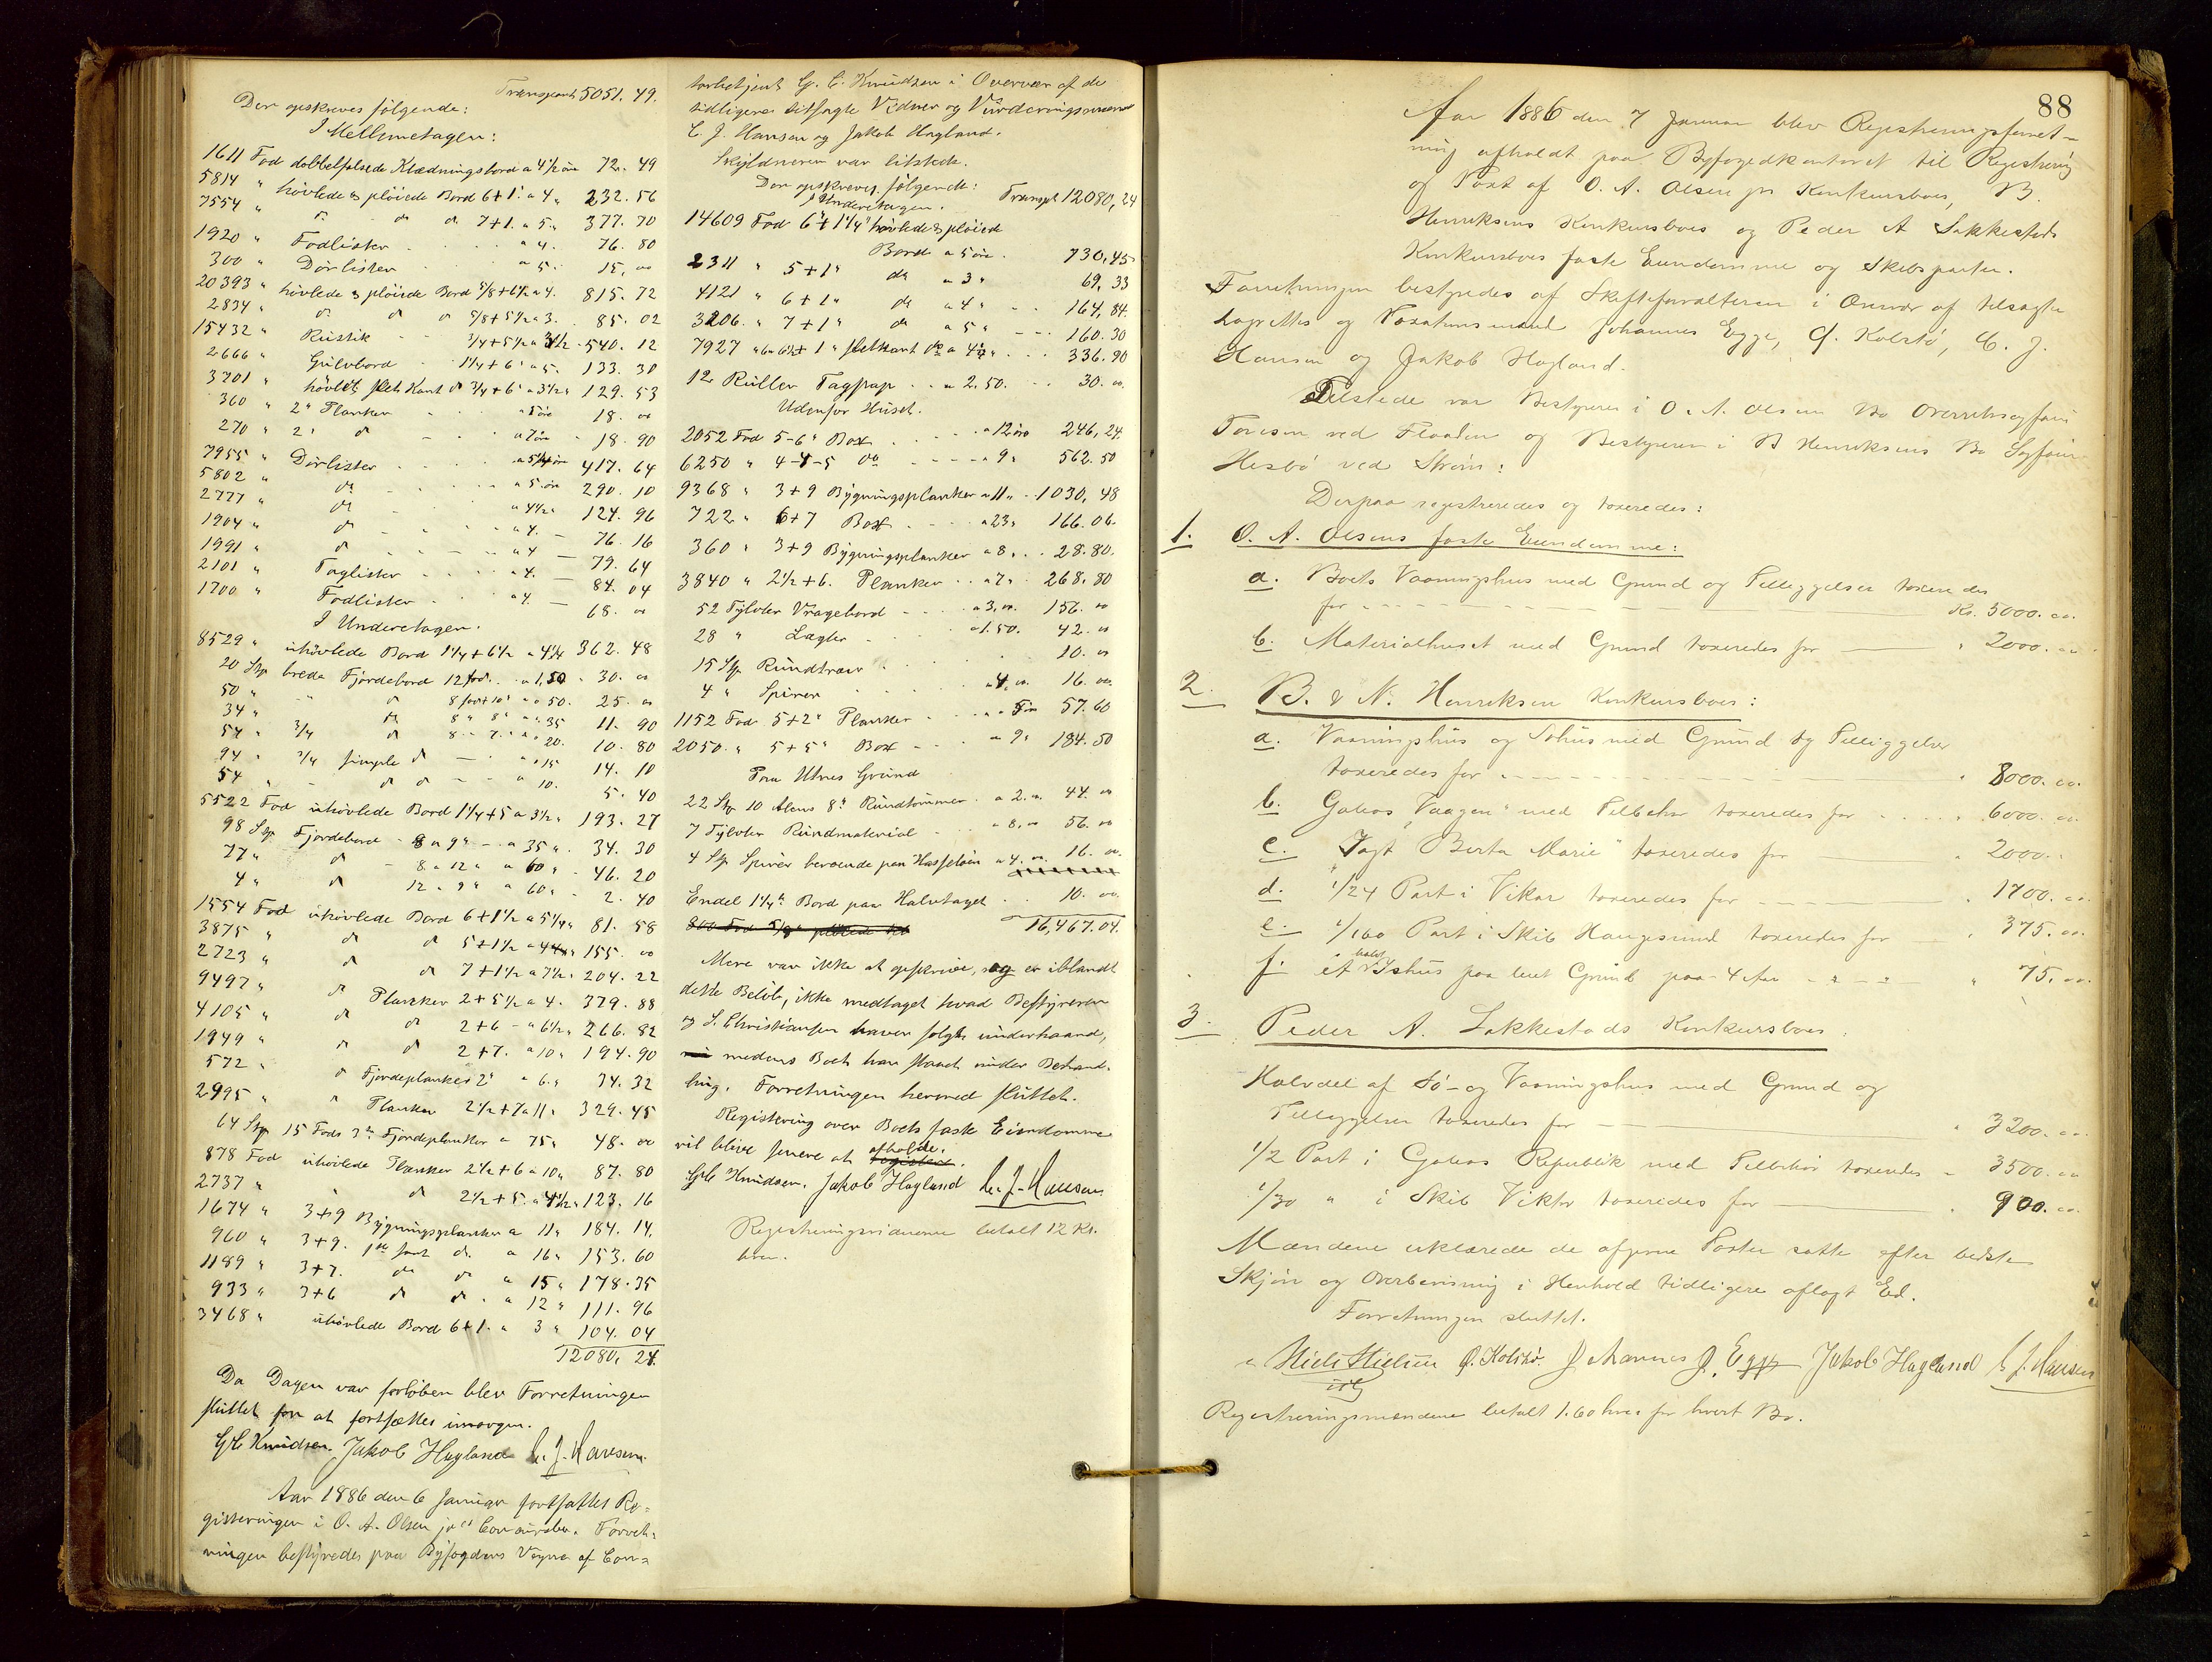 Transport 5051. 49.
Der opskreves følgende:
I Mellemetagen:
1611 Fod dobbelfalsede Klædningsbord a 4 1/2 øre 72. 49
5814 " høvlede & pløiede Bord 6+1" a 4 " 232. 56
7554 " do do do 7+1. a 5 " 377. 70
1920 " Fodlister a 4. 76. 80
300 " Dørlister a 5. 15. 00
20393 " høvlede & pløiede Bord 5/8+6 1/2 a 4. 815. 72
2834 " do do do 5/8+5 1/2 a 3. 85. 02
15432 " Rustik 3/4+5 1/2 a 3 1/2 540. 12
2666 " Gulvbord 1 1/4+6" a 5. 133. 30
3701 " høvlet slet Kant do 3/4+6" a 3 1/2 " 129. 53
360 " 2" Planker a 5 øre 18. 00
270 " 2" do a 7 øre 18. 90
7955 " Dørlister a 5 1/4 øre 417. 64
5802 " do a 5 øre 290. 10
2777 " do a 4 1/2 " 124. 96
1904 " do a 4. 76. 16
1991 " do a 4 79. 64
2101 " Taglister a 4. 84. 04
1700 " Fodlister a 4. 68. 00
I Underetagen.
8529 " uhøvlede Bord 1 1/4+6 1/2 a 4 1/4 362. 48
20 Stp brede Fjordebord 12 fod. a 1,50 30. 00
50 " " do 8 fod+10" a 50. 25. 00
34 " do 8 " 8" a 35 11. 90
54 " 3/4 do 8 - 7. " a 20. 10. 80
94 " 3/4 simple do a 15 14. 10
54 " - do do a 10. 5. 40
5522 Fod uhøvlede Bord 1 1/4+5 a 3 1/2 " 193. 27
98 Stp Fjordebord - 8 a 9" - a 35 " 34. 30
77 " do - 8 a 12 " a 60 " 46. 20
4 " do 12 " 9 " a 60 " 2. 40
1554 Fod uhøvlede Bord 6+1 1/2 a 5 1/4 " 81. 58
3875 " do do 5+1 1/2 a 4 155. 00
2723 " do do 7+1 1/2 a 7 1/2 " 204. 22
9497 " do Planker 2+5 1/2 a 4. 379. 88
4105 " do do 2+6 - a 6 1/2 " 266. 82
1949 " do do 2+7. a 10 " 194. 90
572 " do Fjordeplanker 2" a 6 " 34. 32
2995 " " Planker 2 1/2+7 a 11 " 329. 45
64 Stp 15 Fods 3" Fjordeplanker a 75 " 48. 00
878 Fod uhøvlede Planker 2 1/2+6 a 10 " 87. 80
2737 " " do 2 1/2+5 a 4 1/2 " 123. 16
1674 " 3+9 Bygningsplanker a 11 " 184. 14.
960 " 3+9. 1ste sort do. a 16 " 153. 60
1189 " 3+7. do do a 15 " 178. 35
933 " 3+6 do do a 12 " 111. 96
3468 " uhøvlede Bord 6+1. a 3 " 104. 04
12080, 24.
Da Dagen var forløben blev Forretningen
sluttet for at fortsættes imorgen.
GC Knudsen. Jakob Hagland C. J. Hansen.
Aar 1886 den 6 Januar fortsattes Re-
gistreringen i O. A. Olsen jrs Concursbo. Forret-
ningen bestyredes paa Byfogdens Vegne af Con-
torbetjent G. C. Knudsen i Overvær af de
tidligere tilsagte Vidner og Vurderingsmænd
C. J. Hansen og Jakob Hagland.
Skyldneren var tilstede.
Der opskreves følgende:
I Underetagen. Transpt 12080, 24
14609 Fod 6"+1 1/4" høvlede & pløiede
Bord a 5 øre. 730,45
2311 " 5+1" do a 3 " 69, 33
4121 " 6+1" do a 4 " 164, 84.
3206. " 7+1" do a 5 " 160. 30
7927 " 6 a 6 1/2+1" sletkant do a 4 1/4 " 336. 90
12 Ruller Tagpap a 2. 50. 30. 00
Udenfor Huset.
2052 Fod 5-6" Boxt a 12 øre 246, 24.
6250 " 4-4-5 do a 9 " 562. 50
9368 " 3+9 Bygningsplanker a 11 " 1030, 48
722 " 6+7 Boxt a 23 " 166. 06.
360 " 3+9 Bygningsplanker a 8 " 28. 80.
3840 " 2 1/2+6. Planker a 7 " 268. 80
52 Tylvter Vragebord a 3. 00. 156. 00
28 " Lægter a 1. 50. 42. 00
15 Stp Rundtræer 10. 00
4 " Spirer a 4. 00 16. 00
1152 Fod 5+2" Planker a 5 øre 57. 60
2050. " 5+5" Boxt a 9 " 184. 50
Paa Utnes Grund
22 Stp 10 Alens 8" Rundtømmer a 2. 00. 44. 00
7 Tylvter Rundmaterial a 8. 00 56. 00
4 Stp Spirer beroende paa Hasseløen a 4. 00. 16. 00.
Endel 1 1/4" Bord paa Halvtaget 10. 00
16,467. 04.
Mere var ikke at opskrive, og er iblandt
dette Beløb, ikke medtaget hvad Bestyreren
og S. Christiansen haver solgt underhaand,
medens Boet har staaet under Behand-
ling. Forretningen hermed sluttet.
Registrering over Boets faste Eiendomme
vil blive senere at afholde.
GC Knudsen. Jakob Hagland C. J. Hansen
Registreringsvidnerne betalt 12 Kr.
hver.
88
Aar 1886 den 7 Januar blev Registreringsforret-
ning afholdt paa Byfogedkontoret til Registrering
og Taxt af O. A. Olsen jrs Konkursboes, B.
Henriksens Konkursboes og Peder A Sakkestads
Konkursboes faste Eiendomme og Skibsparter.
Forretningen bestyredes af Skifteforvalteren i Overvær af tilsagte
Lagrettes og Taxationsmænd Johannes Egge, Q. Kolstø, C. J.
Hansen og Jakob Hagland.
Tilstede var Bestyreren i O. A. Olsens Bo Overretssagfører
Tonesen ved Flaaden og Bestyreren i B Henriksens Bo Sagfører
Hesbø ved Strøm:
Derpaa registreredes og taxeredes:
1. O. A. Olsens faste Eiendomme:
a. Boets Vaaningshus med Grund og Tilliggelser taxeredes
for Kr. 5000. 00.
b. Materialhuset med Grund taxeredes for " 2000. 00
2. B. & N. Henriksen Konkursboes:
a. Vaaningshus og Søhus med Grund og Tilliggelser
taxeredes for " 8000. 00.
b. Galeas "Vaagen" med Tilbehør taxeredes for " 6000. 00
c. Jagt "Berta Marie" taxeredes for " 2000. "
d. 1/24 Part i Vikar taxeredes for " 1700. 00
e. 1/160 Part i Skib Haugesund taxeredes for " 375. 00
f. et halvt Ishus paa leiet Grund paa 4 Aar " 75. 00
3. Peder A. Sakkestads Konkursboes:
Halvdel af Sø- og Vaaningshus med Grund og
Tilliggelser taxeredes for " 3200. 00
1/2 Part i Galeas Republik med Tilbehør taxeredes " 3500. 00
1/30 " i Skib Viktor taxeredes for " 900. 00
Mændene erklærede de afgivne Taxter satte efter bedste
Skjøn og Overbevisning i Henhold tidligere aflagt Ed.
Forretningen sluttet.
Niels Nielsen Q. Kolstø. Johannes J. Egge Jakob Hagland C J. Hansen
Registreringsmændene betalt 1.60 hver for hvert Bo.